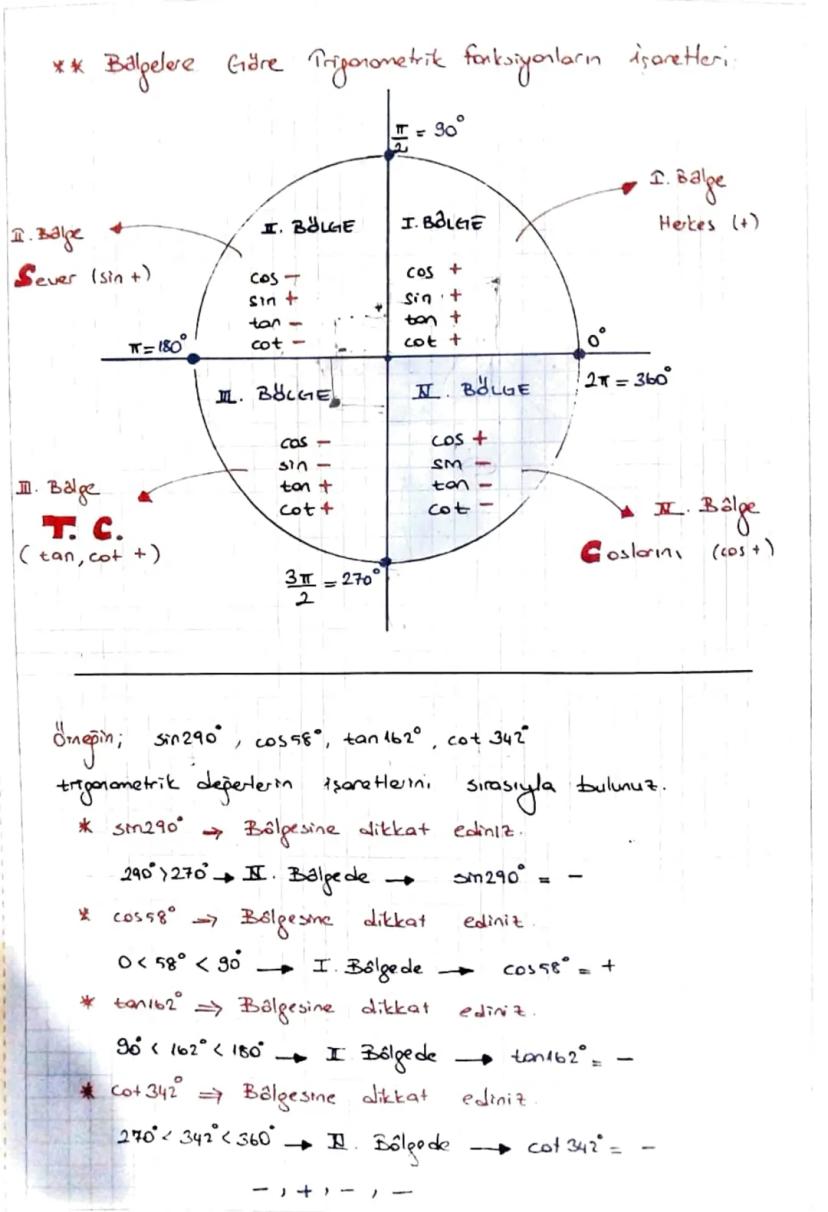 ** Bölgelere Göre Trigonometrik fonksiyonların işaretleri
π/2 = 90°
I. Bölge
Herkes (+)
II. Bölge
Sever (sin +)
II. BÖLGE
cos -
sin +
tan -
cot -
I. BÖLGE
cos +
sin +
tan +
cot +
π = 180°
0°
2π = 360°
III. BÖLGE
cos -
sin -
tan +
cot +
IV. BÖLGE
cos +
sin -
tan -
cot -
III. Bölge
T. C.
(tan, cot +)
IV. Bölge
Coslarını (cos +)
3π/2 = 270°
Örneğin; sin290°, cos58°, tan162°, cot 342°
trigonometrik değerlerin işaretlerini sırasıyla bulunuz.
* sin290° → Bölgesine dikkat ediniz.
290° > 270° → IV. Bölgede → sin290° = -
* cos58° → Bölgesine dikkat ediniz.
0 < 58° < 90° → I. Bölgede → cos58° = +
* tan162° ⇒ Bölgesine dikkat ediniz.
90° < 162° < 180° → II Bölgede → tan162° = -
* cot342° ⇒ Bölgesine dikkat ediniz.
270° < 342° < 360° → IV. Bölgede → cot 342° = -
- , + , - , -